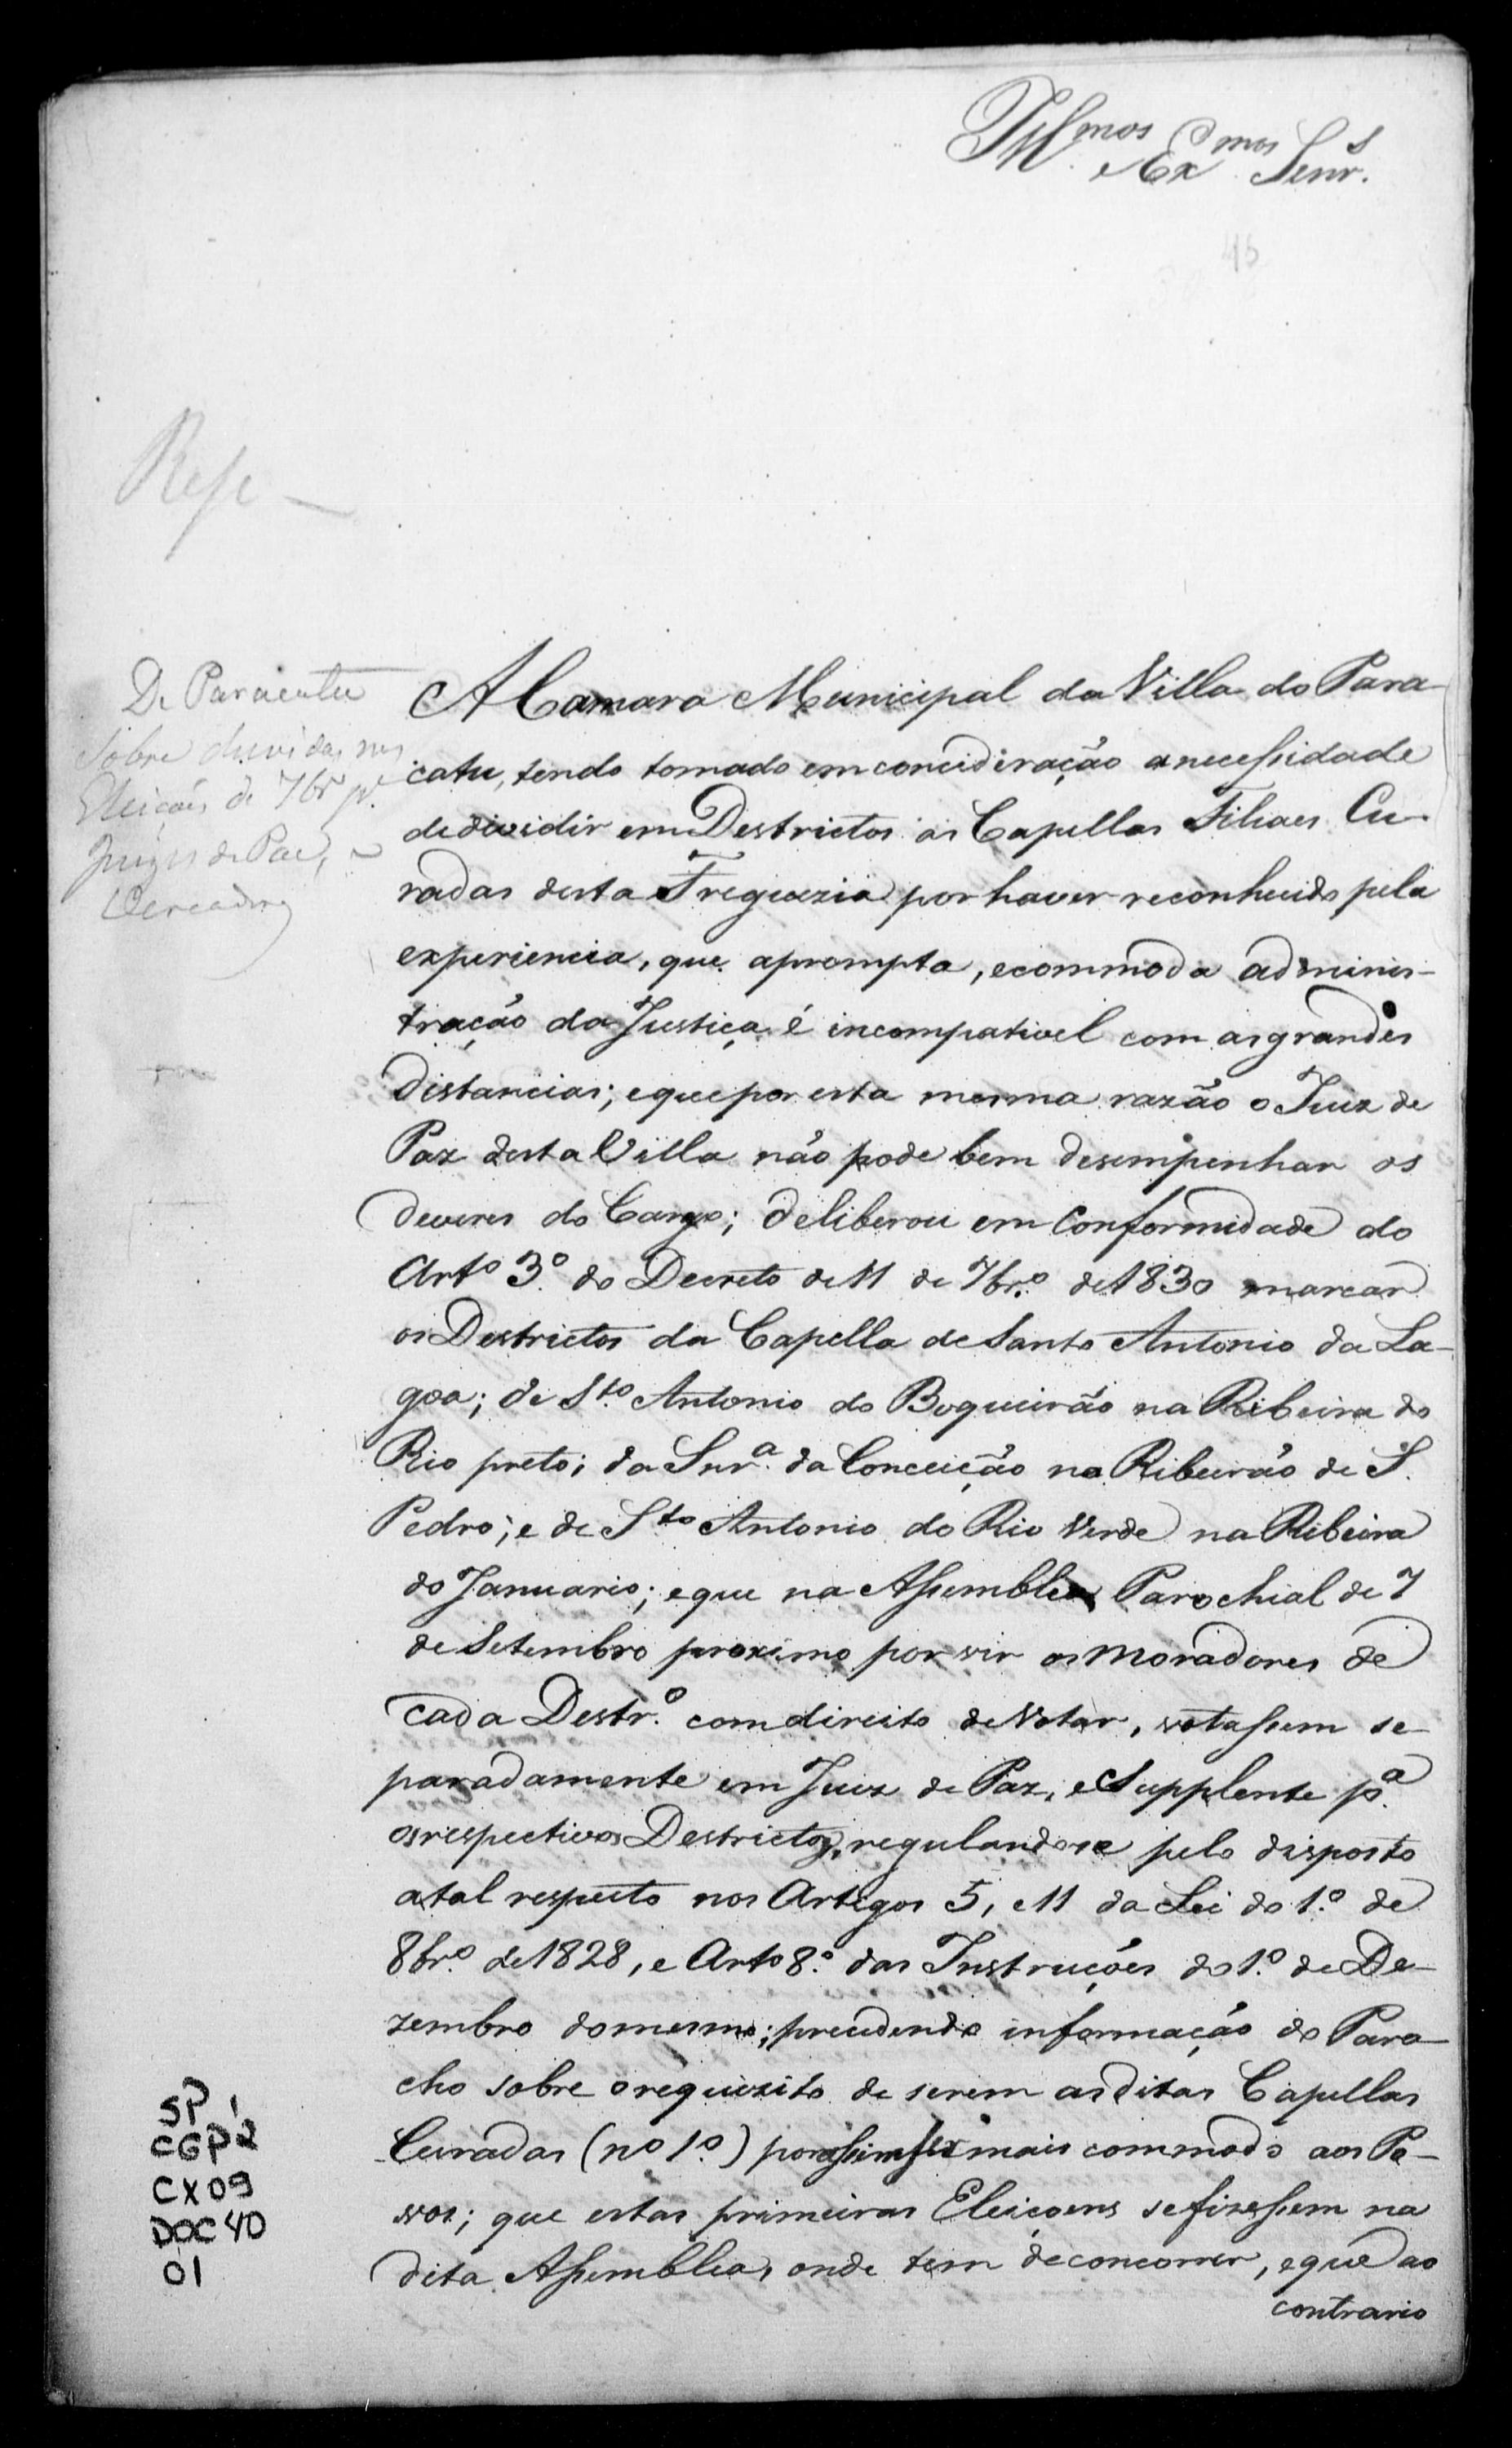 Ill.mos e Ex.mos Senr.s
45
Resp.
De Paracatu
Sobre duvidas nas
Eleiçoẽs de 7br.º p.ª
Juizes de Paz, e
Vereadores
A Camara Municipal da Villa do Para-
catu, tendo tomado em concideração a necessidade
dedividir em Destrictos as Capellas Filiaes Cu-
radas desta Freguezia por haver reconhecido pela
experiencia, que aprompta, ecommoda adminis-
tração da Justiça é incompativel com asgrandes
distancias; eque por esta mesma razão o Juiz de
Paz desta Villa não pode bem desempenhar os
deveres do Cargo; deliberou em Conformidade do
Artº 3.º do Decreto de 11 de 7br.º de 1830 marcar
os Destrictos da Capella de Santo Antonio da La-
goa; de S.to Antonio do Boqueirão na Ribeira do
Rio preto; da Snr.ª da Conceição no Ribeirão de S.
Pedro; e de S.to Antonio do Rio Verde na Ribeira
do Januario; eque na Assemblea Parochial de 7
de Setembro proximo por vir os moradores de
cada Destr.º com direito de Votar, votassem se-
paradamente em Juiz de Paz, e Supplente p.ª
os respectivos Destrictos, regulandose pelo disposto
atal respeito nos Artigos 5, e 11 da Lei do 1.º de
8br.º de 1828, e Artº 8.º das Instruções do 1.º de De-
zembro domesmo; precedendo informação do Paro-
cho sobre orequezito de serem as ditas Capellas
Curadas (nº 1.º) por assim ser mais commodo aos Po-
vos; que estas primeiras Eleiçoens sefizessem na
dita Assemblea, onde tem deconcorrer, eque ao
contrario
SP 1
CGP 2
CX 09
DOC 40
01